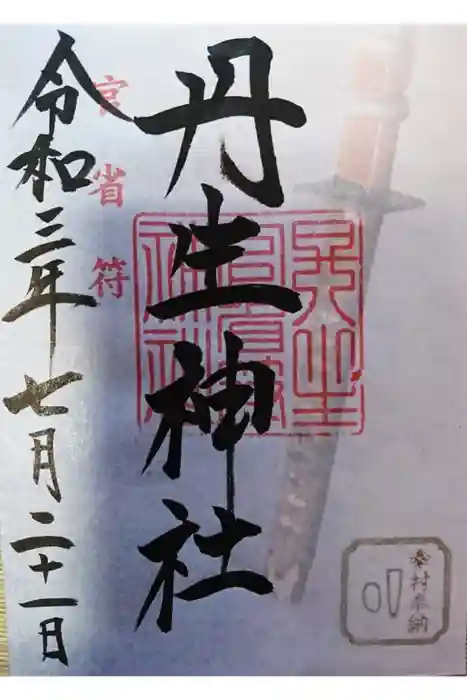 丹生神社
官省符
令和三年七月二十一日